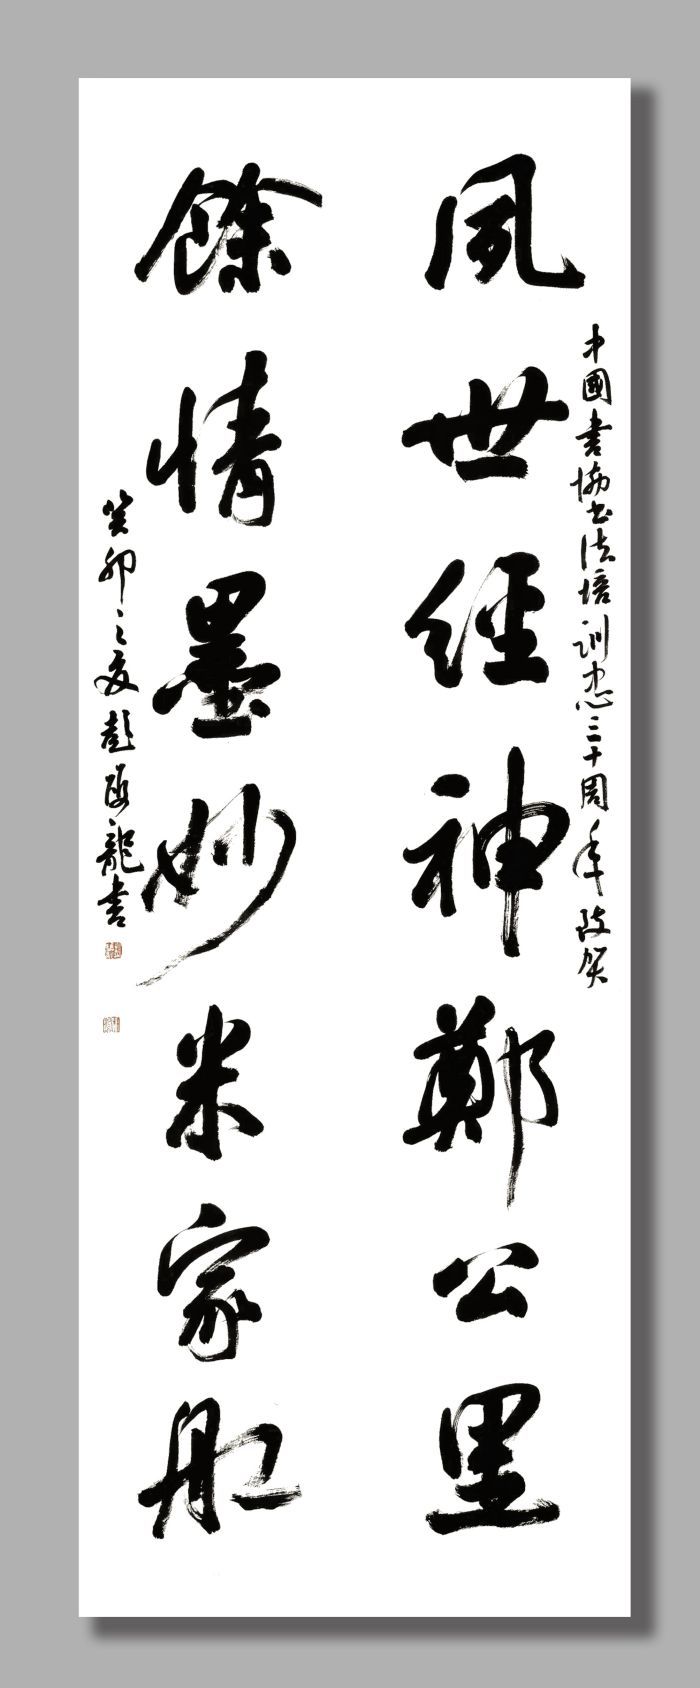 中國書協书法培訓中心三十周年致贺
夙世經神鄭公里
餘情墨妙米家舡
癸卯之夏彭龍書